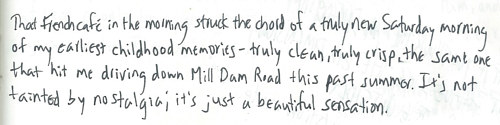 That French café in the morning struck the chord of a truly new Saturday morning
of my earliest childhood memories - truly clean, truly crisp, the same one
that hit me driving down Mill Dam Road this past summer. It's not
tainted by nostalgia; it's just a beautiful sensation.